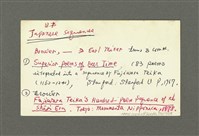 Japanese
Brower, — Dr Earl Miner
① Superior Poems of Our Time: 183 poems
integrated into a sequence of Fujiwara Teika
(1162-1241), Stanford, Stanford U P, 1967.
② Brower
Fujiwara Teika's Hundred-Poem Sequence of the
Shōji Era, Tokyo: Monumenta Nipponica, 1978